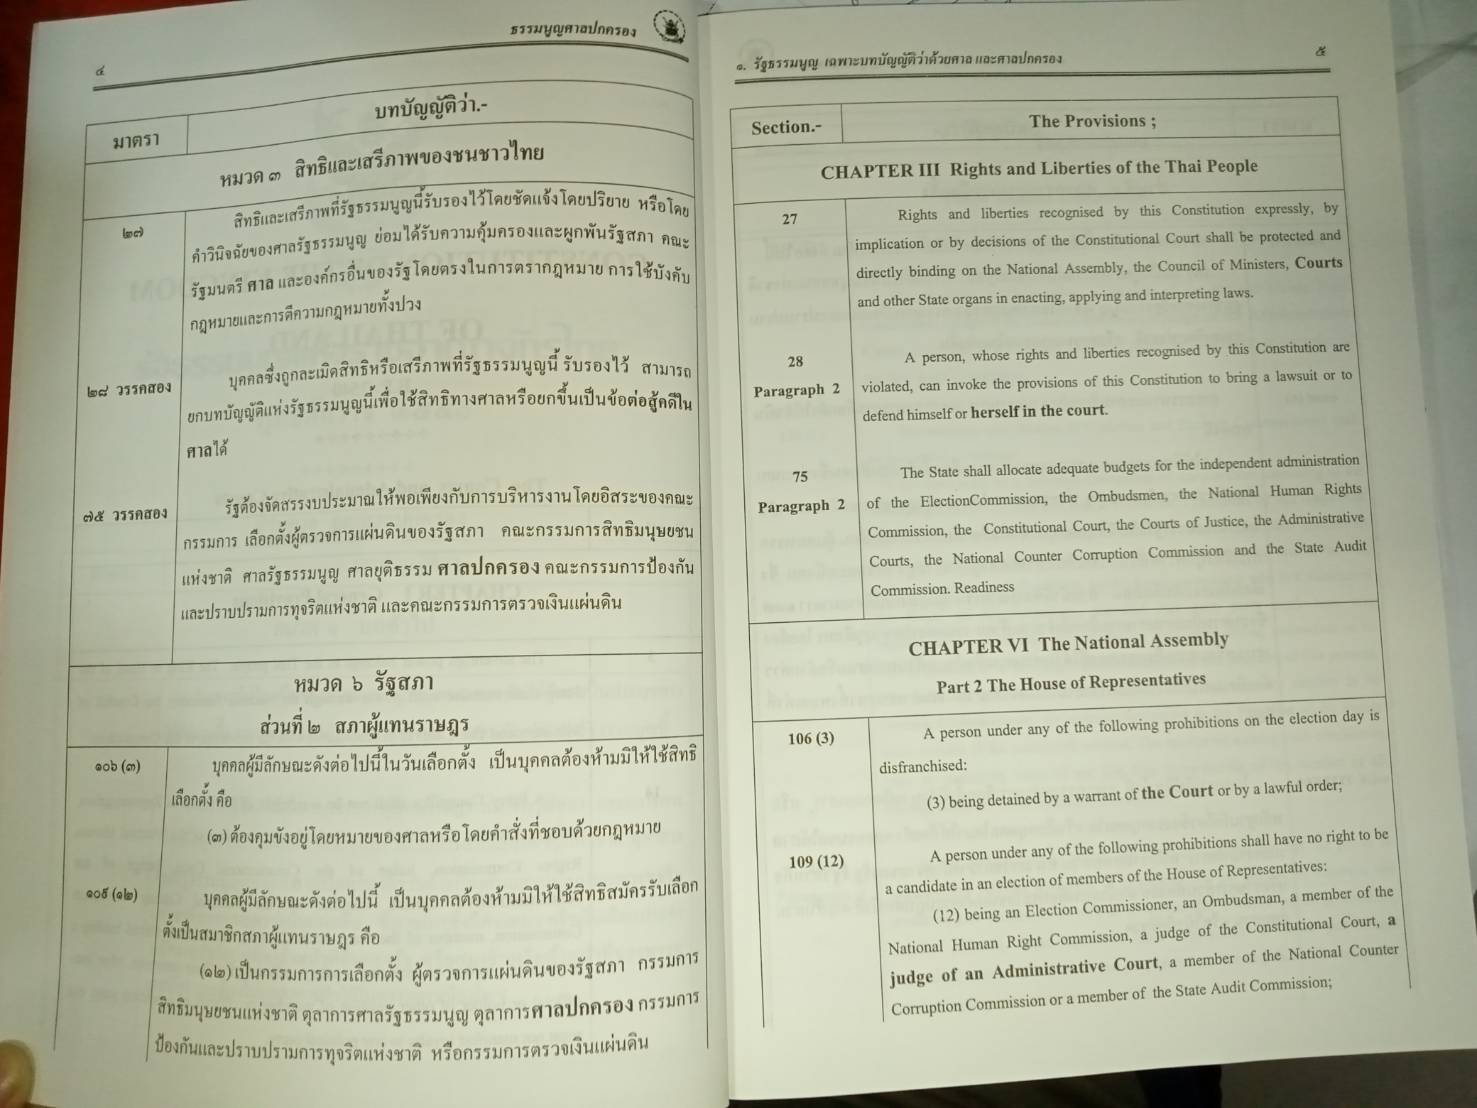 ธรรมนูญศาลปกครอง
๔
มาตรา
บทบัญญัติว่า.-
หมวด ๓ สิทธิและเสรีภาพของชนชาวไทย
๒๗
สิทธิและเสรีภาพที่รัฐธรรมนูญนี้รับรองไว้โดยชัดแจ้งโดยปริยาย หรือโดย
คำวินิจฉัยของศาลรัฐธรรมนูญ ย่อมได้รับความคุ้มครองและผูกพันรัฐสภา คณะ
รัฐมนตรี ศาล และองค์กรอื่นของรัฐโดยตรงในการตรากฎหมาย การใช้บังคับ
กฎหมายและการตีความกฎหมายทั้งปวง
๒๘ วรรคสอง
บุคคลซึ่งถูกละเมิดสิทธิหรือเสรีภาพที่รัฐธรรมนูญนี้ รับรองไว้ สามารถ
ยกบทบัญญัติแห่งรัฐธรรมนูญนี้เพื่อใช้สิทธิทางศาลหรือยกขึ้นเป็นข้อต่อสู้คดีใน
ศาลได้
๗๕ วรรคสอง
รัฐต้องจัดสรรงบประมาณให้พอเพียงกับการบริหารงานโดยอิสระของคณะ
กรรมการ เลือกตั้งผู้ตรวจการแผ่นดินของรัฐสภา คณะกรรมการสิทธิมนุษยชน
แห่งชาติ ศาลรัฐธรรมนูญ ศาลยุติธรรม ศาลปกครอง คณะกรรมการป้องกัน
และปราบปรามการทุจริตแห่งชาติ และคณะกรรมการตรวจเงินแผ่นดิน
หมวด ๖ รัฐสภา
ส่วนที่ ๒ สภาผู้แทนราษฎร
๑๐๖ (๓)
บุคคลผู้มีลักษณะดังต่อไปนี้ในวันเลือกตั้ง เป็นบุคคลต้องห้ามมิให้ใช้สิทธิ
เลือกตั้ง คือ
(๓) ต้องคุมขังอยู่โดยหมายของศาลหรือโดยคำสั่งที่ชอบด้วยกฎหมาย
๑๐๙ (๑๒)
บุคคลผู้มีลักษณะดังต่อไปนี้ เป็นบุคคลต้องห้ามมิให้ใช้สิทธิสมัครรับเลือก
ตั้งเป็นสมาชิกสภาผู้แทนราษฎร คือ
(๑๒) เป็นกรรมการการเลือกตั้ง ผู้ตรวจการแผ่นดินของรัฐสภา กรรมการ
สิทธิมนุษยชนแห่งชาติ ตุลาการศาลรัฐธรรมนูญ ตุลาการศาลปกครอง กรรมการ
ป้องกันและปราบปรามการทุจริตแห่งชาติ หรือกรรมการตรวจเงินแผ่นดิน
๑. รัฐธรรมนูญ เฉพาะบทบัญญัติว่าด้วยศาล และศาลปกครอง
๕
Section.-
The Provisions ;
CHAPTER III Rights and Liberties of the Thai People
27
Rights and liberties recognised by this Constitution expressly, by
implication or by decisions of the Constitutional Court shall be protected and
directly binding on the National Assembly, the Council of Ministers, Courts
and other State organs in enacting, applying and interpreting laws.
28
Paragraph 2
A person, whose rights and liberties recognised by this Constitution are
violated, can invoke the provisions of this Constitution to bring a lawsuit or to
defend himself or herself in the court.
75
Paragraph 2
The State shall allocate adequate budgets for the independent administration
of the ElectionCommission, the Ombudsmen, the National Human Rights
Commission, the Constitutional Court, the Courts of Justice, the Administrative
Courts, the National Counter Corruption Commission and the State Audit
Commission. Readiness
CHAPTER VI The National Assembly
Part 2 The House of Representatives
106 (3)
A person under any of the following prohibitions on the election day is
disfranchised:
(3) being detained by a warrant of the Court or by a lawful order;
109 (12)
A person under any of the following prohibitions shall have no right to be
a candidate in an election of members of the House of Representatives:
(12) being an Election Commissioner, an Ombudsman, a member of the
National Human Right Commission, a judge of the Constitutional Court, a
judge of an Administrative Court, a member of the National Counter
Corruption Commission or a member of the State Audit Commission;